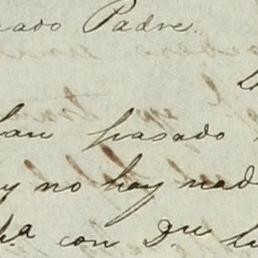 cado Padre.
han pasado
y no hay nad
con Dn